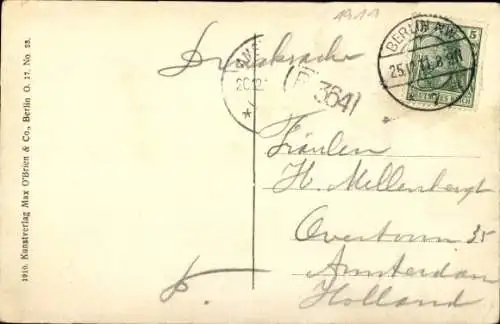 1911
Drucksache
BERLIN
25.12.11. 8-9N
5
20.12
3641
Fräulen
H. Mellenbergt
Overtoom 35
Amsterdam
Holland
1910. Kunstverlag Max O'Brien & Co., Berlin O. 17. No 28.